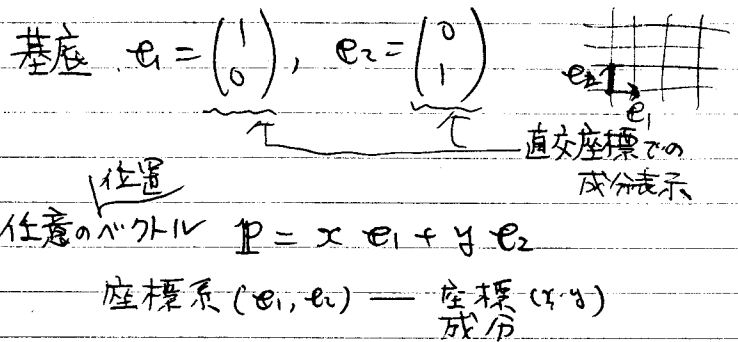 基底 e₁ = (1 0), e₂ = (0 1)
e₂
e₁
直交座標での
成分表示
位置
任意のベクトル P = x e₁ + y e₂
座標系 (e₁, e₂) — 座標 (x, y)
成分